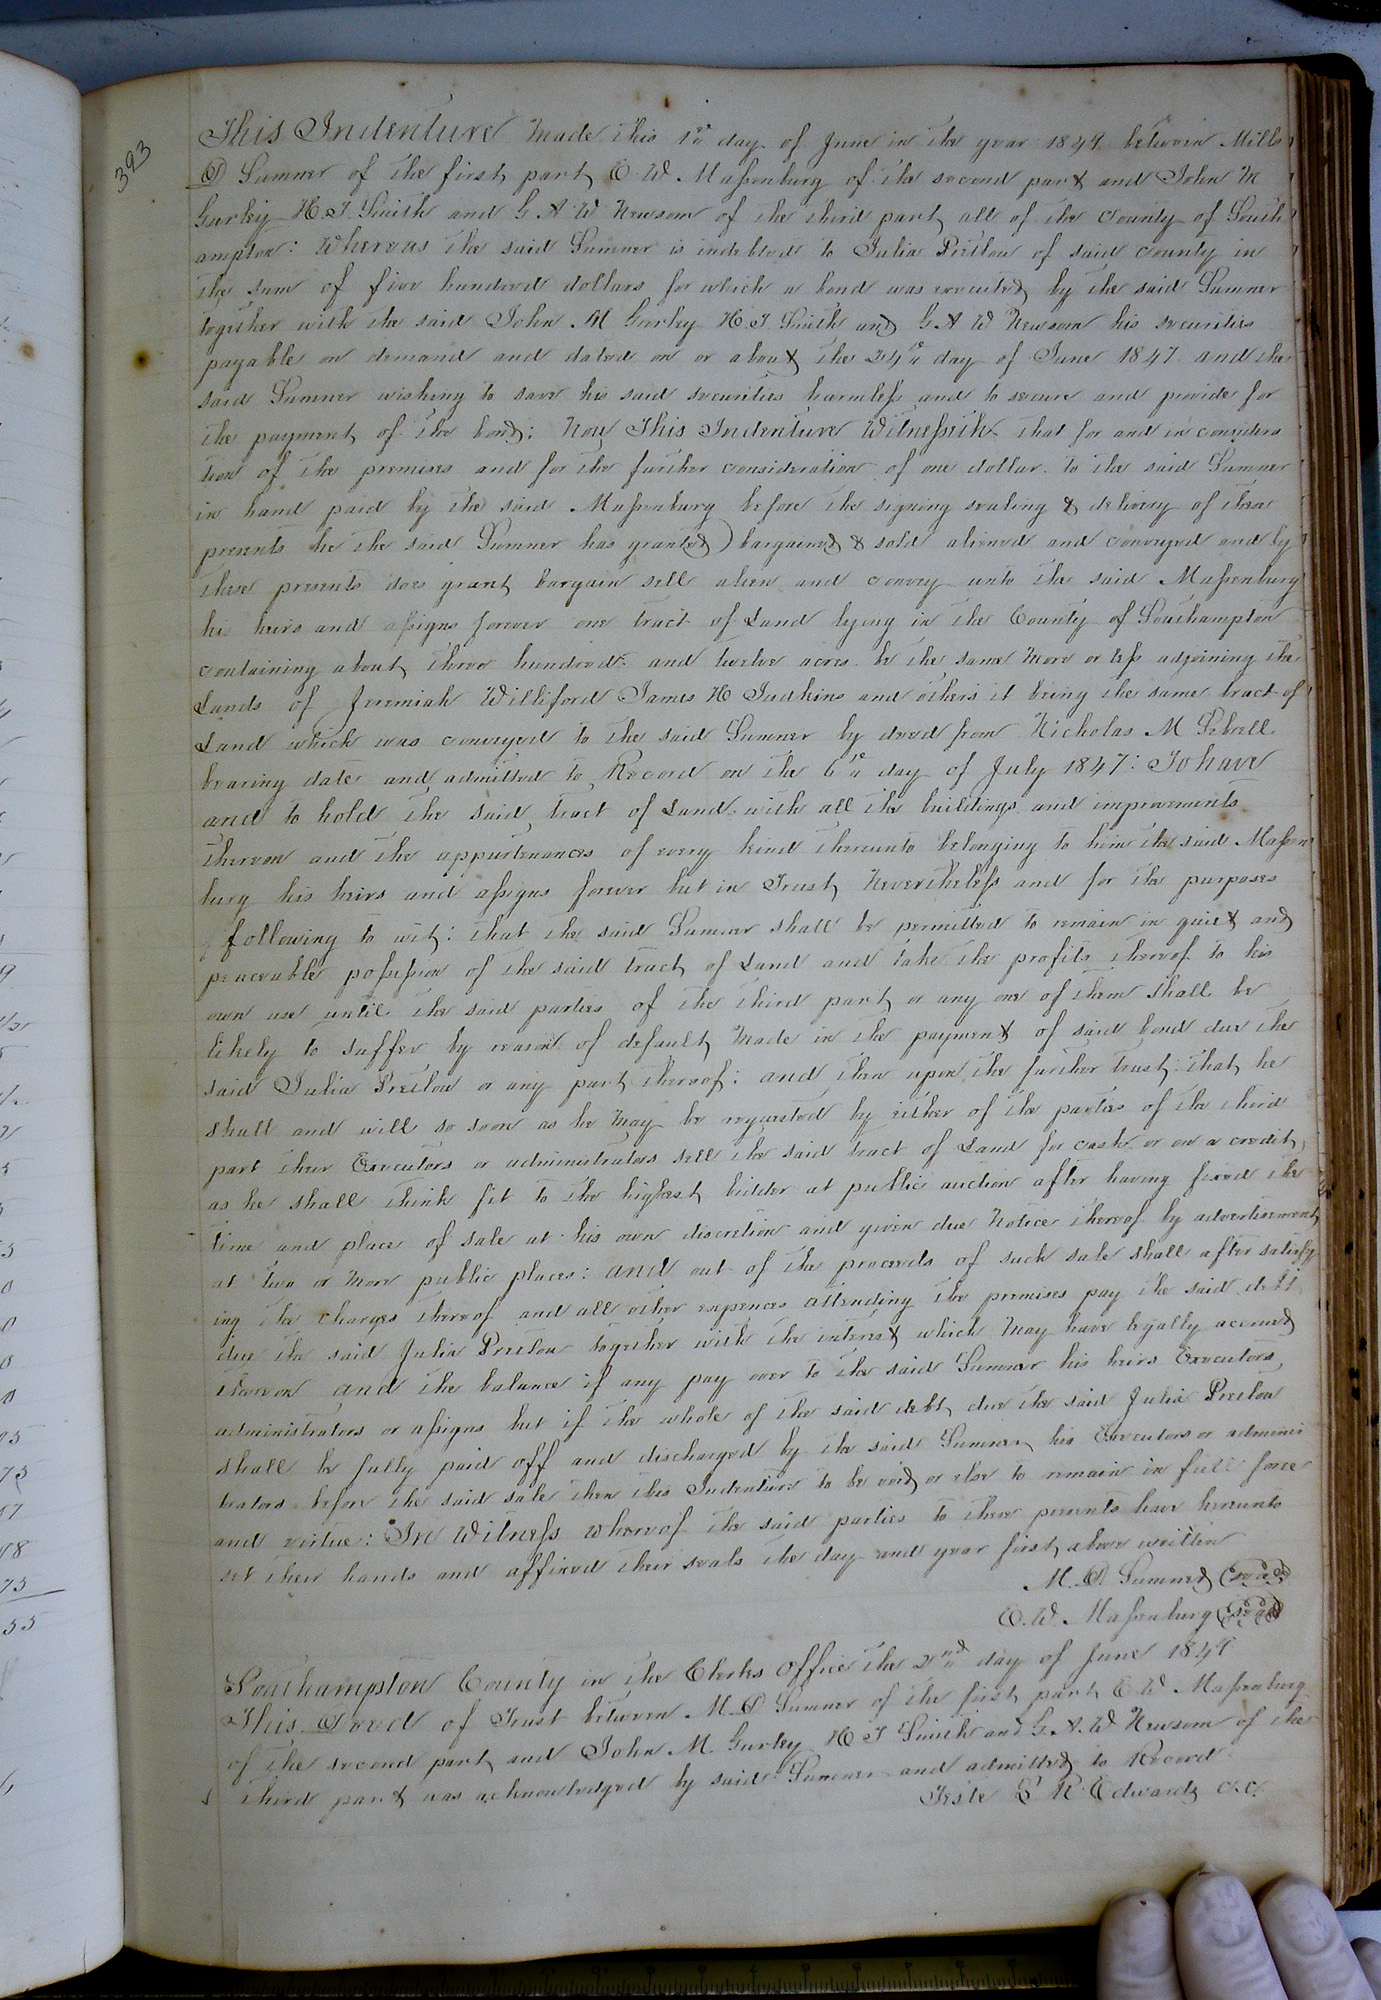 393
This Indenture Made this 1st day of June in the year 1849 between Mills
D Sumner of the first part, E. W. Massenburg of the second part and John M
Gurley H. T. Smith and G. A. W. Newsom of the third part, all of the County of South
ampton: Whereas the said Sumner is indebted to Julia Pretlow of said County in
the sum of five hundred dollars for which a bond was executed by the said Sumner
together with the said John M Gurley H. T. Smith and G A W Newsom his securities
payable on demand and dated on or about the 24th day of June 1847 and the
said Sumner wishing to save his said securities harmless and to secure and provide for
the payment of the bond; Now This Indenture Witnesseth that for and in considera
tion of the premises and for the further consideration of one dollar to the said Sumner
in hand paid by the said Massenburg before the signing sealing & delivery of these
presents he the said Sumner has granted bargained & sold aliened and conveyed and by
these presents does grant bargain sell alien and convey unto the said Massenburg
his heirs and assigns forever one tract of Land lying in the County of Southampton
containing about three hundred and twelve acres be the same More or less adjoining the
Lands of Jeremiah Williford James H Judkins and others it being the same tract of
Land which was conveyed to the said Sumner by deed from Nicholas M Sebrell
bearing date and admitted to Record on the 6th day of July 1847: To have
and to hold the said tract of Land with all the buildings and improvements
thereon and the appurtenances of every kind thereunto belonging to him the said Massen
burg his heirs and assigns forever but in Trust, Nevertheless and for the purposes
following to wit: that the said Sumner shall be permitted to remain in quiet and
peaceable possession of the said tract of Land and take the profits thereof to his
own use until the said parties of the third part or any one of them shall be
likely to suffer by reason of default Made in the payment of said bond due the
said Julia Pretlow or any part thereof: and then upon the further trust that he
shall and will so soon as he May be requested by either of the parties of the third
part their Executors or administrators sell the said tract of Land for cash or on a credit,
as he shall think fit to the highest bidder at public auction after having fixed the
time and place of sale at his own discretion and given due Notice thereof by advertisement
at two or More public places: and out of the proceeds of such sale shall after satisfy
ing the charges thereof and all other expences attending the premises pay the said debt
due the said Julia Pretlow together with the interest which May have legally accrued
thereon and the balance if any pay over to the said Sumner his heirs Executors,
administrators or assigns but if the whole of the said debt due the said Julia Pretlow
shall be fully paid off and discharged by the said Sumner his Executors or adminis
trators before the said sale then this Indenture to be void or else to remain in full force
and virtue: In Witness whereof the said parties to these presents have hereunto
set their hands and affixed their seals the day and year first above written
M. D. Sumner (Seal)
E. W. Massenburg (Seal)
Southampton County in the Clerks Office the 2nd day of June 1849
This Deed of Trust between M. D Sumner of the first part, E W Massenburg
of the second part, and John M. Gurley H T Smith and G. A. W Newsom of the
third part was acknowledged by said Sumner and admitted to Record
Teste L R Edwards C.C.